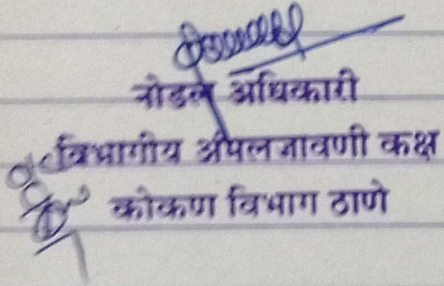 नोडल अधिकारी
विभागीय अंमलबजावणी कक्ष
कोकण विभाग ठाणे